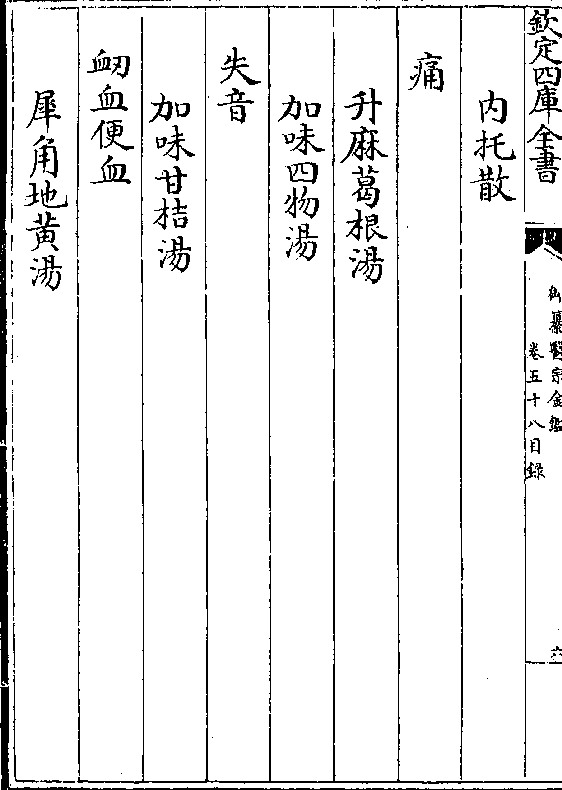 欽定四庫全書
御纂醫宗金鑑
卷五十八目録
六
内托散
痛
升麻葛根湯
加味四物湯
失音
加味甘桔湯
衂血便血
犀角地黄湯